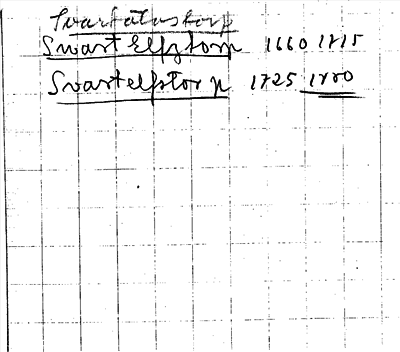 Svartalustorp
Svart Elfztorp 1660 1715
Svartelfstorp 1725 1780